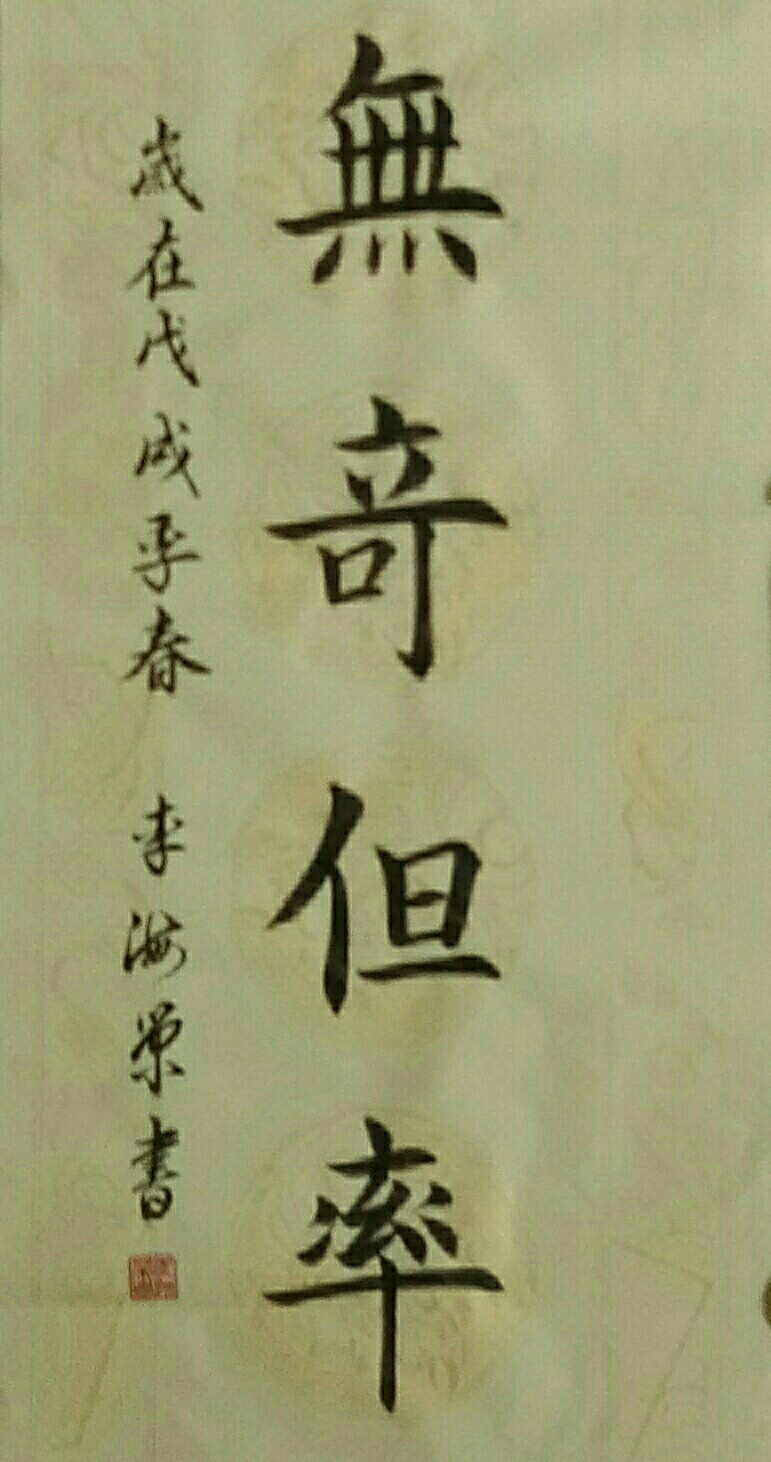 無竒但率
歲在戊戌季春 李海榮書